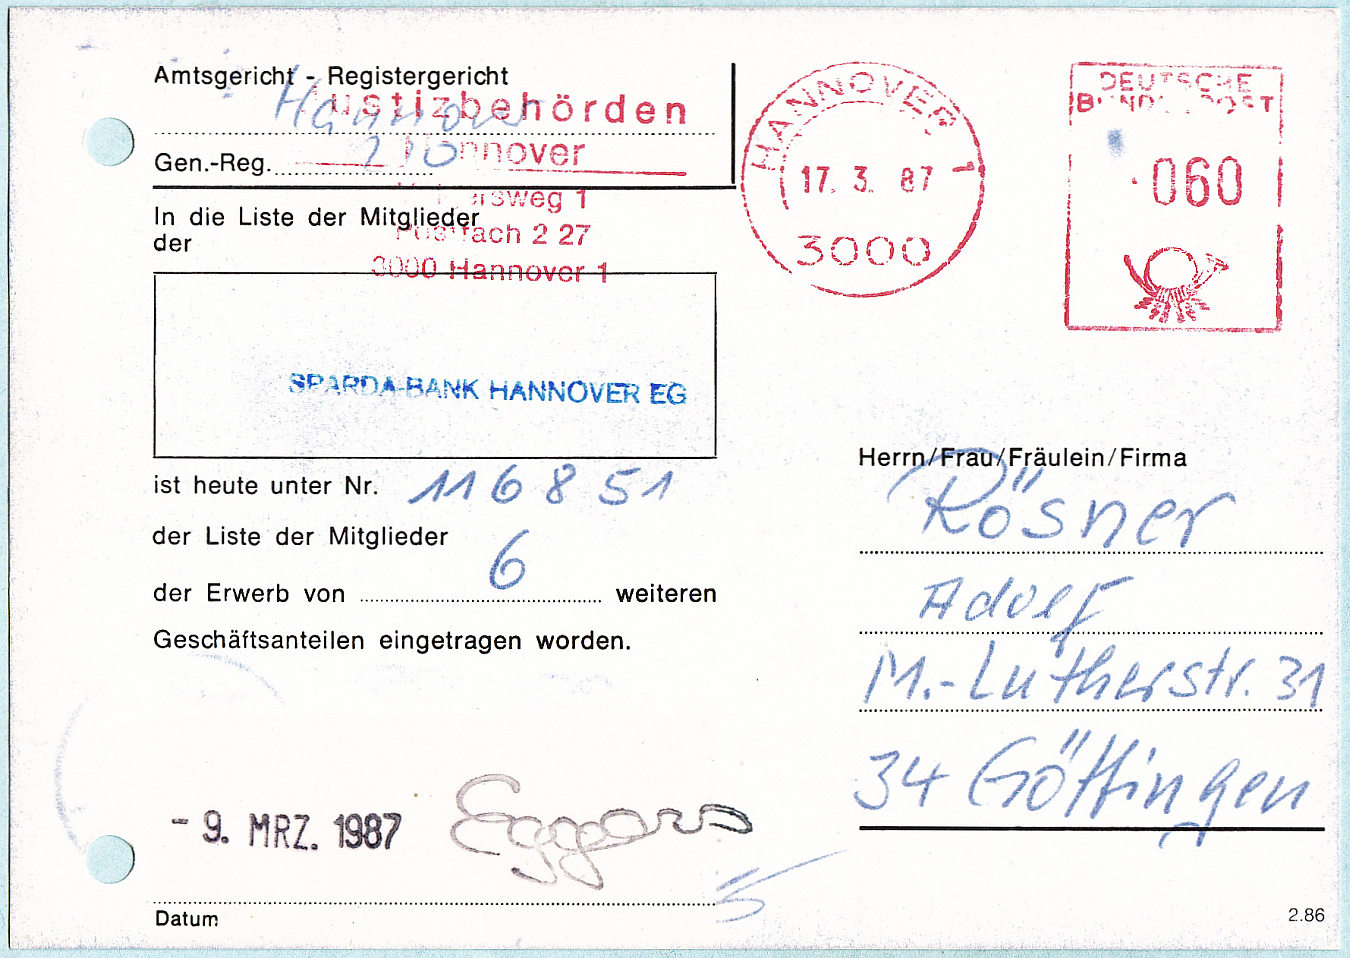 Amtsgericht - Registergericht
Hannover
Justizbehörden
Gen.-Reg. 210
Hannover
1
Postfach 2 27
3000 Hannover 1
HANNOVER 1
17. 3. 87
3000
DEUTSCHE
BUNDESPOST
060
In die Liste der Mitglieder
der
SPARDA-BANK HANNOVER EG
ist heute unter Nr. 116851
der Liste der Mitglieder
der Erwerb von 6 weiteren
Geschäftsanteilen eingetragen worden.
- 9. MRZ. 1987 Eggers
Datum
Herrn/Frau/Fräulein/Firma
Rösner
Adolf
M.-Lutherstr. 31
34 Göttingen
2.86